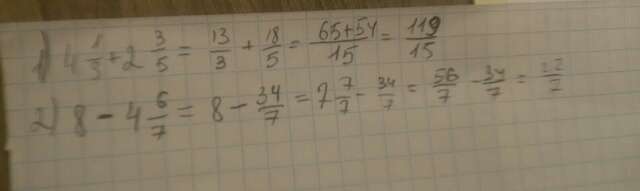 1) 4 1/3 + 2 3/5 = 13/3 + 18/5 = 65+54/15 = 119/15
2) 8 - 4 6/7 = 8 - 34/7 = 7 7/7 - 34/7 = 56/7 - 34/7 = 22/7